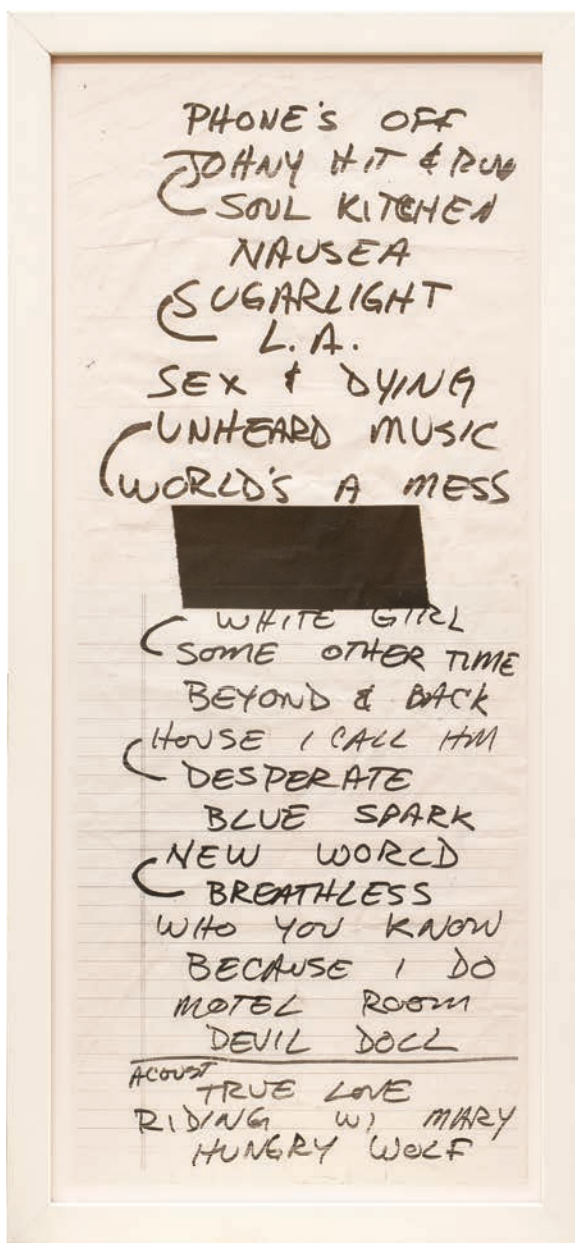 PHONE'S OFF
JOHNY HIT & RUN
SOUL KITCHEN
NAUSEA
SUGARLIGHT
L.A.
SEX & DYING
UNHEARD MUSIC
WORLD'S A MESS
WHITE GIRL
SOME OTHER TIME
BEYOND & BACK
HOUSE I CALL HM
DESPERATE
BLUE SPARK
NEW WORLD
BREATHLESS
WHO YOU KNOW
BECAUSE I DO
MOTEL ROOM
DEVIL DOLL
ACOUST
TRUE LOVE
RIDING W/ MARY
HUNGRY WOLF